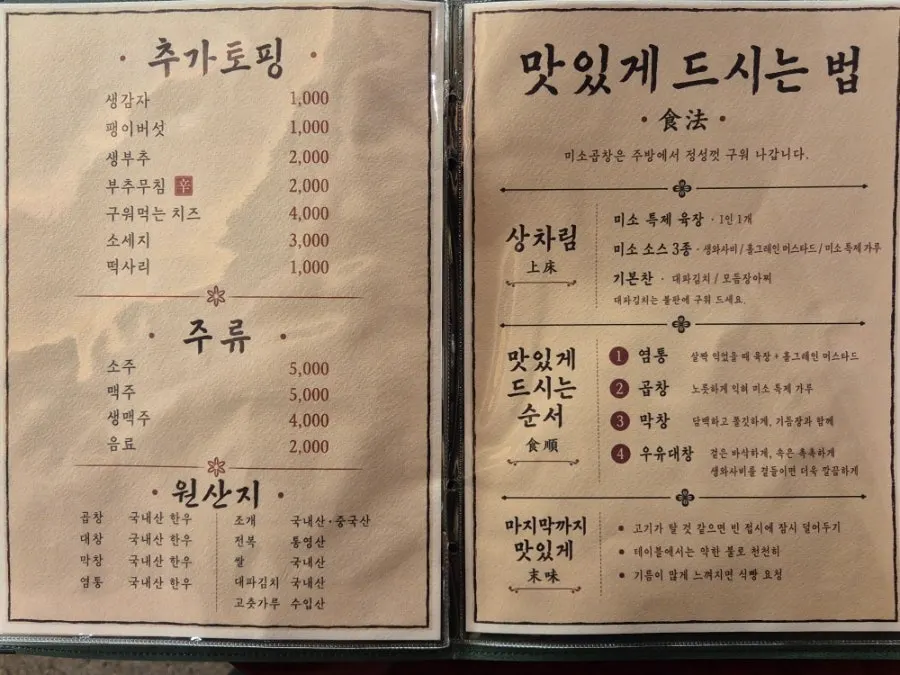 추가토핑
생감자 1,000
팽이버섯 1,000
생부추 2,000
부추무침 辛 2,000
구워먹는 치즈 4,000
소세지 3,000
떡사리 1,000
주류
소주 5,000
맥주 5,000
생맥주 4,000
음료 2,000
원산지
곱창 국내산 한우
대창 국내산 한우
막창 국내산 한우
염통 국내산 한우
조개 국내산·중국산
전복 통영산
쌀 국내산
대파김치 국내산
고춧가루 수입산
맛있게 드시는 법
· 食法 ·
미소곱창은 주방에서 정성껏 구워 나갑니다.
상차림
上床
미소 특제 육장 · 1인 1개
미소 소스 3종 · 생와사비 / 홀그레인 머스타드 / 미소 특제 가루
기본찬 · 대파김치 / 모듬장아찌
대파김치는 불판에 구워 드세요.
맛있게
드시는
순서
食順
1 염통 살짝 익었을 때 육장 + 홀그레인 머스타드
2 곱창 노릇하게 익혀 미소 특제 가루
3 막창 담백하고 쫄깃하게, 기름장과 함께
4 우유대창 겉은 바삭하게, 속은 촉촉하게
생와사비를 곁들이면 더욱 깔끔하게
마지막까지
맛있게
末味
• 고기가 탈 것 같으면 빈 접시에 잠시 덜어두기
• 테이블에서는 약한 불로 천천히
• 기름이 많게 느껴지면 식빵 요청